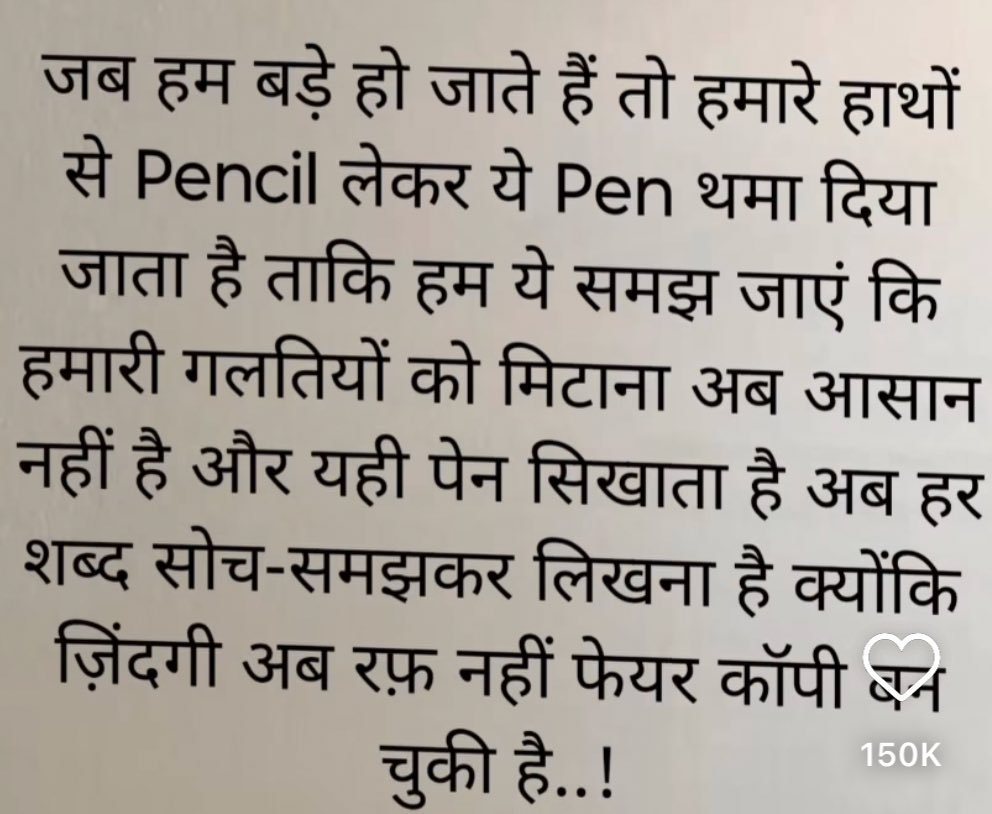 जब हम बड़े हो जाते हैं तो हमारे हाथों
से Pencil लेकर ये Pen थमा दिया
जाता है ताकि हम ये समझ जाएं कि
हमारी गलतियों को मिटाना अब आसान
नहीं है और यही पेन सिखाता है अब हर
शब्द सोच-समझकर लिखना है क्योंकि
ज़िंदगी अब रफ़ नहीं फेयर कॉपी बन
चुकी है..!
150K